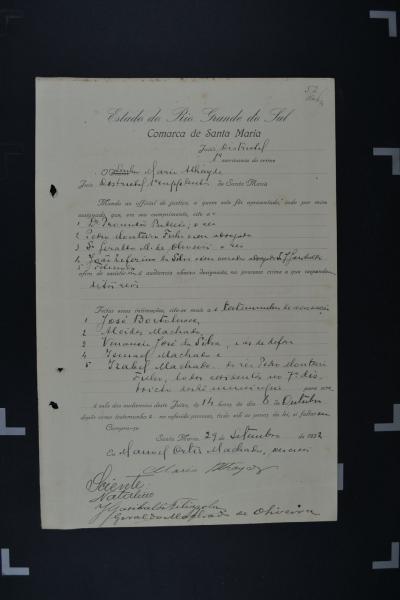 52
Estado do Rio Grande do Sul
Comarca de Santa Maria
Juiz Districtal
1ª
escrivania do crime
O Mario Athayde
Juiz Districtal 1º supplente de Santa Maria
Mando ao official de justiça, a quem este fôr apresentado, indo por mim
assignado, que, em seu cumprimento, cite a
1 Dr Promotor Publico; o réo
2 Pedro Monteiro
3 Geraldo M. de Oliveira; o réo
4 João da Silva e seu advogado J. Garibaldi
5
afim de assistirem á audiencia abaixo designada, no processo crime a que respondem
Feitas essas intimações, cite-se mais as testemunhas de accusação
1 José
2 Alcides Machado
3 Venancio José da Silva, e as de defesa
4 Ismael Machado e
5 Izabel Machado do réo Pedro Monteiro
todos residentes no 7º dis-
tricto deste municipio para vir
á sala das audiencias deste Juizo, ás 14 horas do dia 6 de Outubro
depôr como testemunha no referido processo, tudo sob as penas da lei, si faltarem
Cumpra-se
Santa Maria, 29 de Setembro de 1932
Eu Manoel Ortiz Machado, escrivão
Mario Athayde
Sciente:
Natalino
J Garibaldi Filizzola
Geraldo Machado de Oliveira